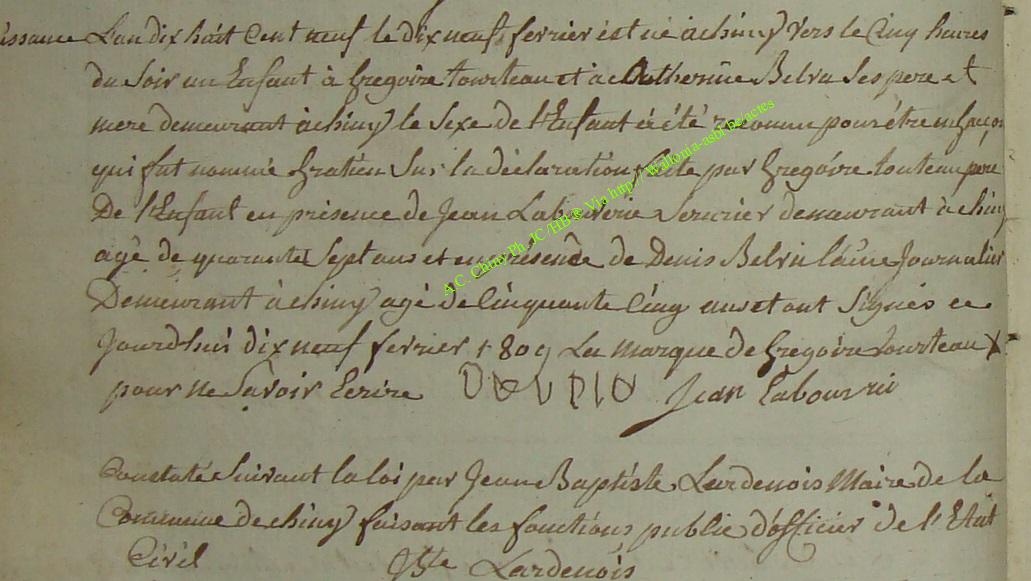 issance L'an dix huit Cent neuf le dix neuf fevrier est né a chiny vers le Cinq heures
du Soir un Enfant à Gregoire tourteau et à Catherine Belva Ses pere et
mere demeurant a chiny le Sexe de l'Enfant à été reconnu pour être un Garçon
qui fut nommé Gratien Sur la déclaration faite par Gregoire touteau père
De l'Enfant en présence de Jean Labouverie Serurier demeurant à chiny
agé de quarante Sept ans et en présence de Denis Belva l'aine Journalier
Demeurant à chiny agé de Cinquante Cinq ans et ont Signés ce
Jourd'hui dix neuf fevrier 1809 La marque de Gregoire tourteau X
pour ne Savoir Ecrire Jean Labouverie
Constaté Suivant la loi par Jean Baptiste Lardenois Maire de la
Commune de chiny faisant les fonctions public d'officier de l'Etat
Civil Jbte Lardenois
A.C. Chiny Ph. JC/HB ® Via http://wallonia-asbl.be.actes